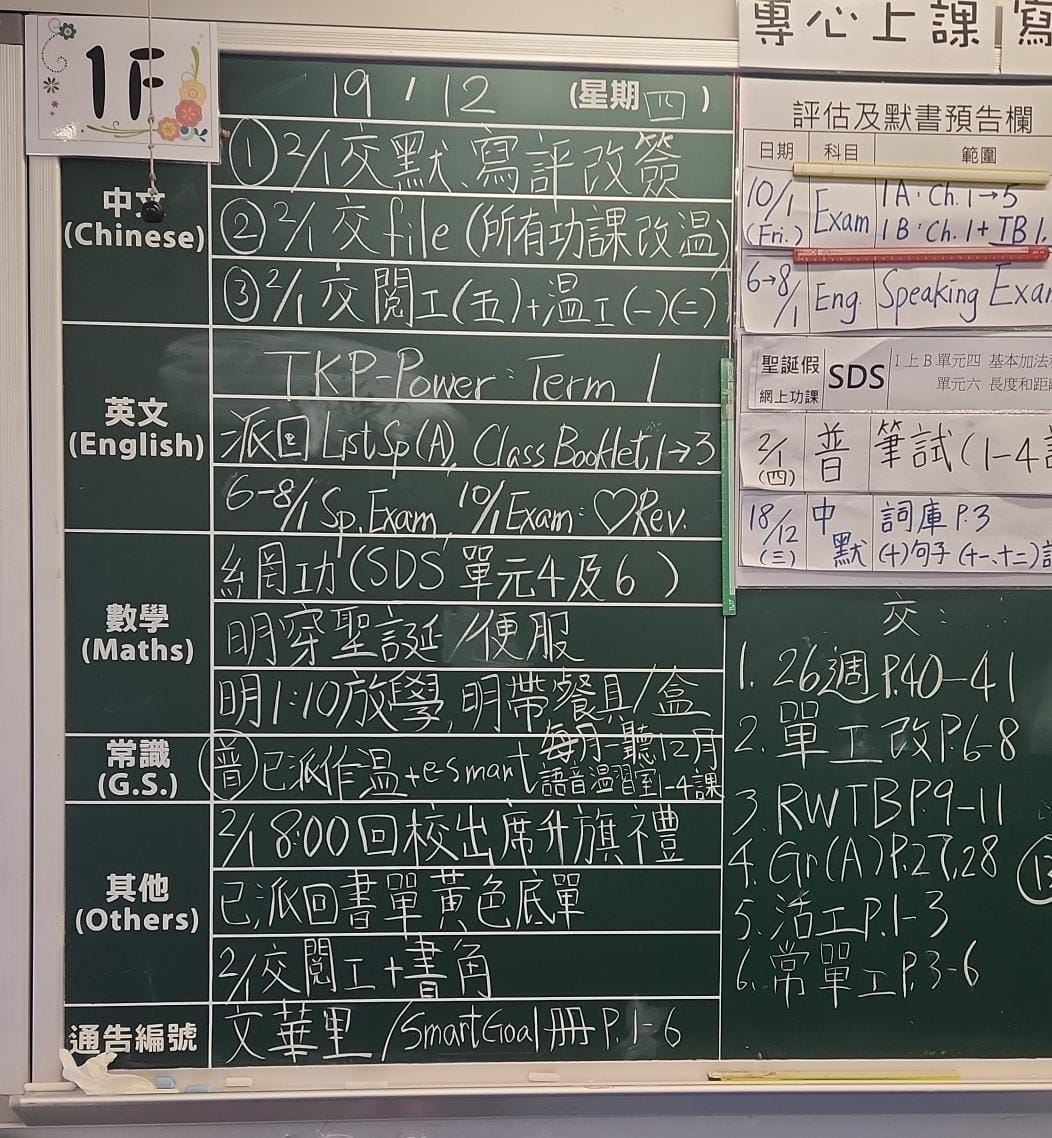 1F
19 / 12 (星期四)
中文
(Chinese)
① 2/1 交默、寫評改簽
② 2/1 交file (所有功課改溫)
③ 2/1 交閱工(五)+温工(一)(二)
英文
(English)
TKP-Power: Term 1
派回List Sp(A), Class Booklet 1→3
6-8/1 Sp. Exam, 10/1 Exam: ♡Rev.
數學
(Maths)
網功(SDS 單元4及6)
明穿聖誕/便服
明1:10放學, 明帶餐具/盒
常識
(G.S.)
普 已派作温+e-smart 每月一聽12月
語音温習室1-4課
其他
(Others)
2/1 8:00回校出席升旗禮
已派回書單黃色底單
2/1交閱工+書角
通告編號
文華里 /SmartGoal冊P.1-6
專心上課 寫
評估及默書預告欄
日期 科目 範圍
10/1 (Fri.) Exam 1A: Ch.1→5
1B: Ch.1 + TB 1.
6→8/1 Eng. Speaking Exa
聖誕假 網上功課 SDS 1上B單元四 基本加法
單元六 長度和距
2/1 (四) 普 筆試(1-4
18/12 (三) 中默 詞庫 P.3
(十)句子(十一、十二)
交:
1. 26週P.40-41
2. 單工改P.6-8
3. RWTBP.9-11
4. Gr(A)P.27,28
5. 活工P.1-3
6. 常單工P.3-6